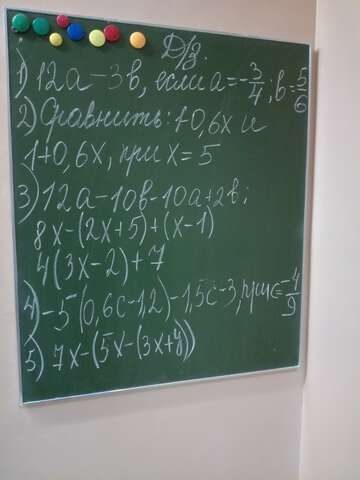 Д/з.
1) 12a-3в, если a=-3/4; в=5/6
2) Сравнить: 1-0,6x и
1+0,6x, при x=5
3) 12a-10в-10a+2в;
8x-(2x+5)+(x-1)
4(3x-2)+7
4) -5(0,6c-1,2)-1,5c-3, при c=-4/9
5) 7x-(5x-(3x+y))